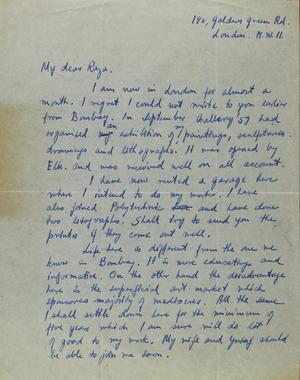 180, Golders Green Rd.
London. N.W. 11.
My dear Raza.
I am now in London for almost a
month. I regret I could not write to you earlier
from Bombay. In september Gallery 59 had
organised an exhibition of my paintings, sculptures
drawings and lithographs. It was opened by
Elk. and was received well on all account.
I have now rented a garage here
where I intend to do my work. I have
also joined Polytechnic and have done
two lithographs. Shall try to send you the
prints if they come out well.
Life here is different from the one we
know in Bombay. It is more educating and
informative. On the other hand the disadvantage
here is the superficial art-market which
sponsores majority of mediocres. All the same
I shall settle down here for the minimum of
five years which I am sure will do lot
of good to my work. My wife and
be able to join me soon. should